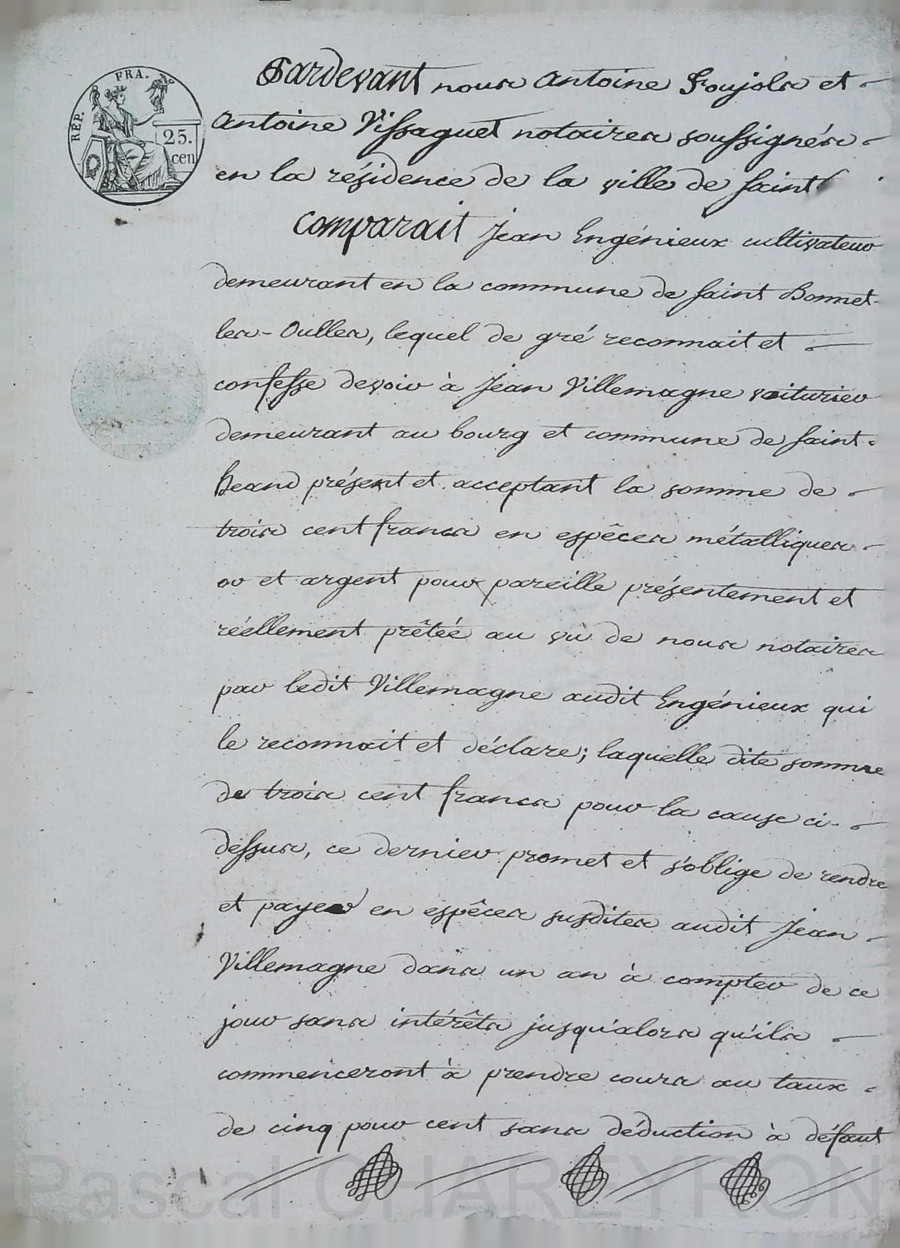 RÉP. FRA.
25.
cen
Pardevant nous Antoine Foujols et
Antoine Vissaguet notaires soussignés
en la résidence de la ville de saint
Comparait Jean Engénieux cultivateur
demeurant en la commune de saint Bonnet-
les-Oulles, lequel de gré reconnait et
confesse devoir à Jean Villemagne voiturier
demeurant au bourg et commune de saint-
héand présent et acceptant la somme de
trois cent francs en espèces métalliques
or et argent pour pareille présentement et
réellement prêtée au vû de nous notaires
par ledit Villemagne audit Engénieux qui
le reconnait et déclare; laquelle dite somme
de trois cent francs pour la cause ci-
dessus, ce dernier promet et s'oblige de rendre
et payer en espèces susdites audit Jean
Villemagne dans un an à compter de ce
jour sans intérêts jusqu'alors qu'ils
commenceront à prendre cours au taux
de cinq pour cent sans déduction à défaut
Pascal CHAREYRON